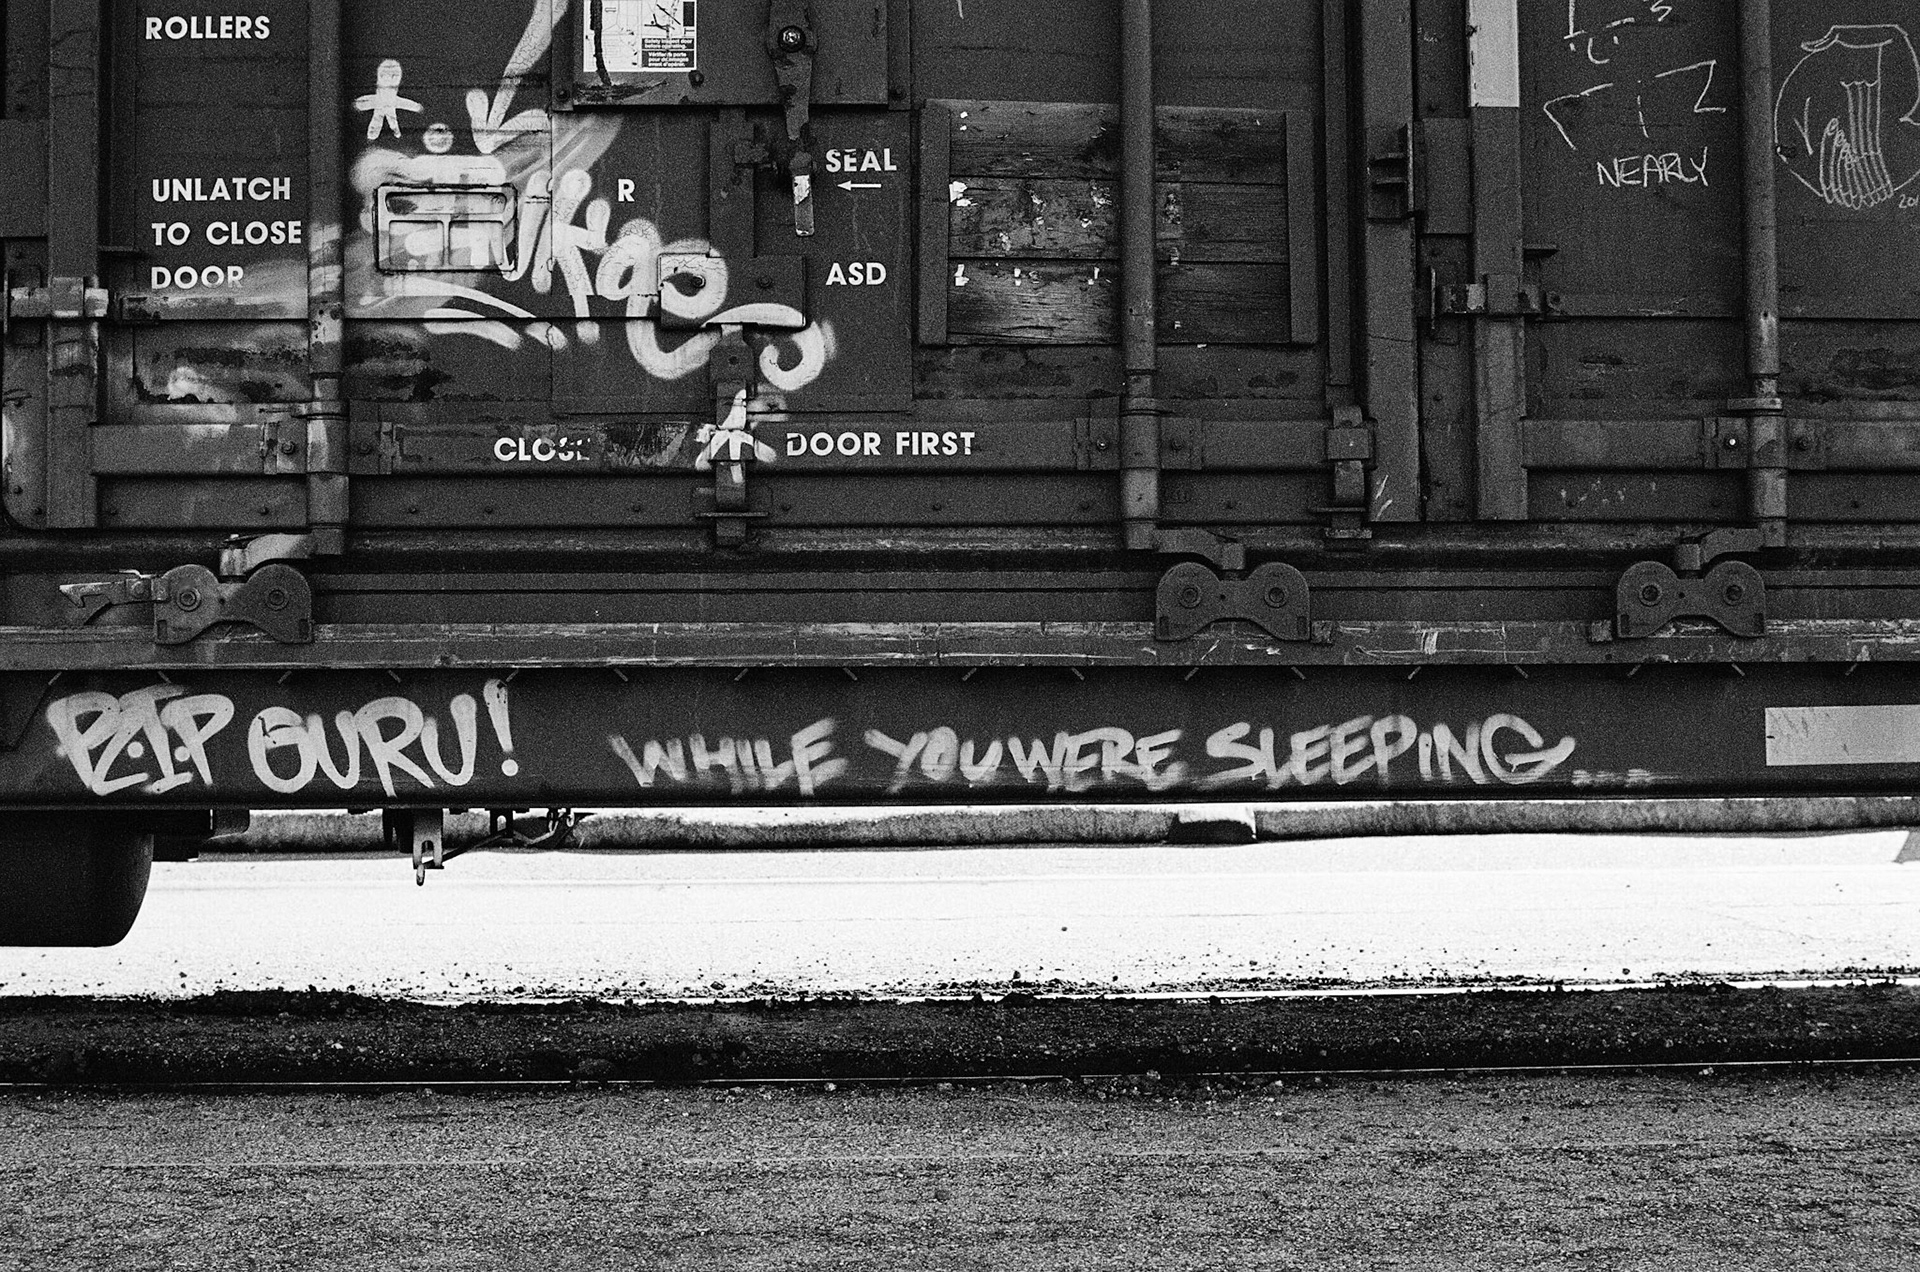 ROLLERS
UNLATCH
TO CLOSE
DOOR
R
SEAL
ASD
CLOSE DOOR FIRST
NEARLY
RIP GURU! WHILE YOU WERE SLEEPING...